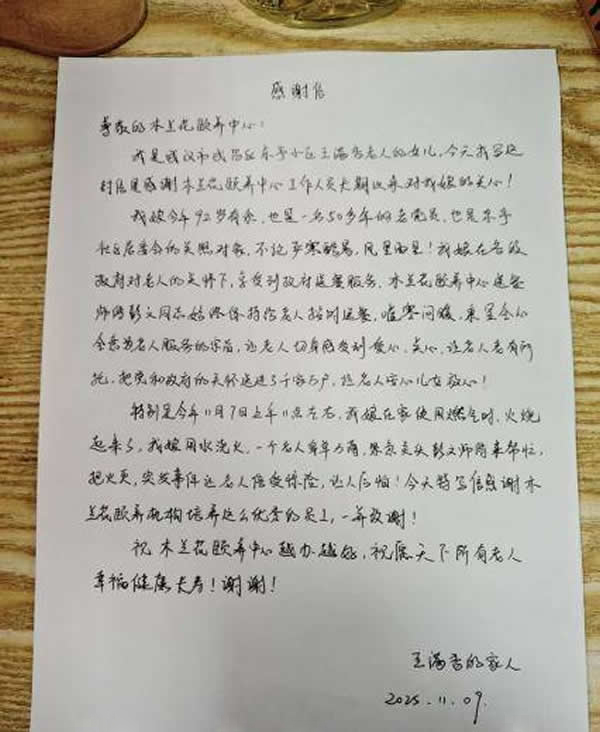 感谢信
尊敬的木兰花颐养中心：
我是武汉市武昌区东亭小区王满香老人的女儿，今天我写这
封信是感谢木兰花颐养中心工作人员长期以来对我娘的关心！
我娘今年92岁有余，也是一名50多年的老党员，也是东亭
社区居委会的关照对象，不论严寒酷暑，风里雨里！我娘在各级
政府对老人的关怀下，享受到政府送餐服务，木兰花颐养中心送餐
师傅彭文同志始终保持给老人按时送餐，嘘寒问暖，秉呈全心
全意为老人服务的宗旨，让老人切身感受到爱心，关心，让老人老有所
托，把党和政府的关怀送进了千家万户，让老人安心儿女放心！
特别是今年11月7日上午11点左右，我娘在家使用燃气时，火烧
起来了，我娘用水浇火，一个老人奔年力薄，紧急关头彭文师傅来帮忙，
把火灭，突发事件让老人倍受惊险，让人后怕！今天特写信感谢木
兰花颐养机构培养这么优秀的员工，一并致谢！
祝木兰花颐养中心越办越好，祝愿天下所有老人
幸福健康长寿！谢谢！
王满香的家人
2025.11.09.